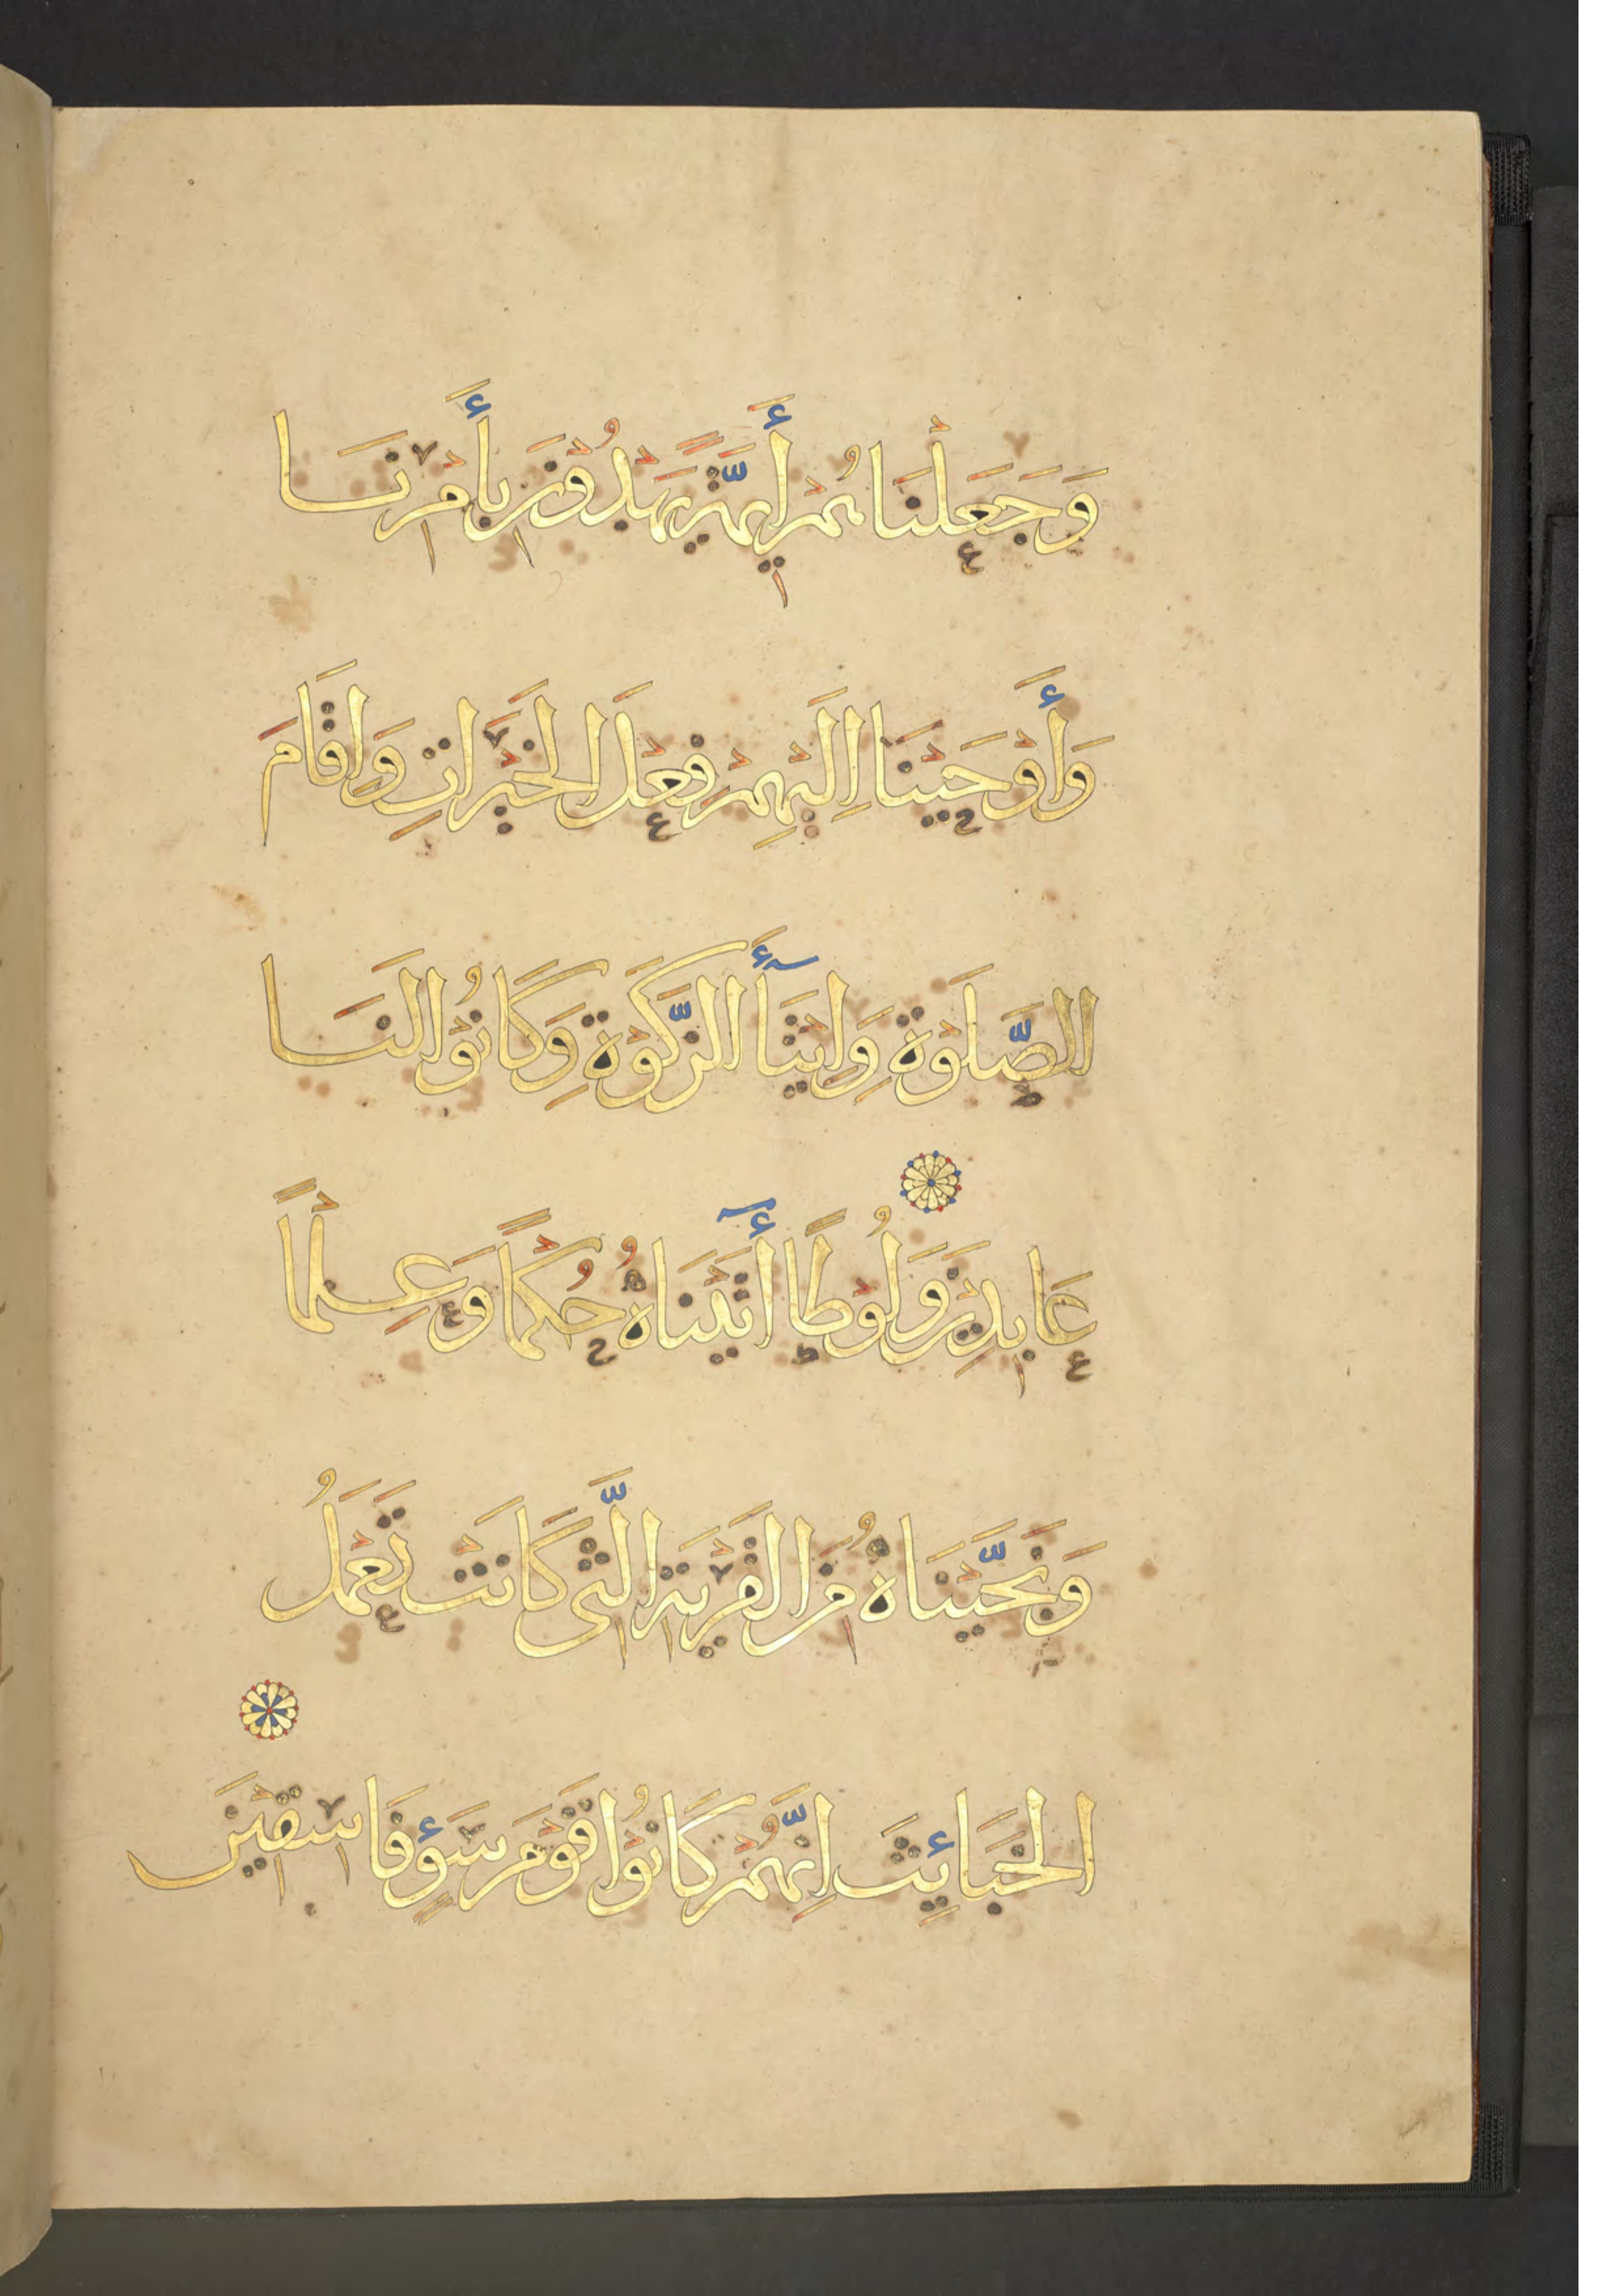 وَجَعَلْنَاهُمْ أَئِمَّةً يَهْدُوْنَ بِأَمْرِنَا
وَأَوْحَيْنَا اِلَيْهِمْ فِعْلَ الْخَيْرَاتِ وَاِقَامَ
الصَّلَوٰةِ وَاِيْتَآءَ الزَّكَوٰةِ وَكَانُوْا لَنَا
عَابِدِيْنَ وَلُوْطًا أٓتَيْنَاهُ حُكْمًا وَعِلْمًا
وَنَجَّيْنَاهُ مِنَ الْقَرْيَةِ الَّتِى كَانَتْ تَعْمَلُ
الْخَبَائِثَ اِنَّهُمْ كَانُوْا قَوْمَ سَوْءٍ فَاسِقِيْنَ